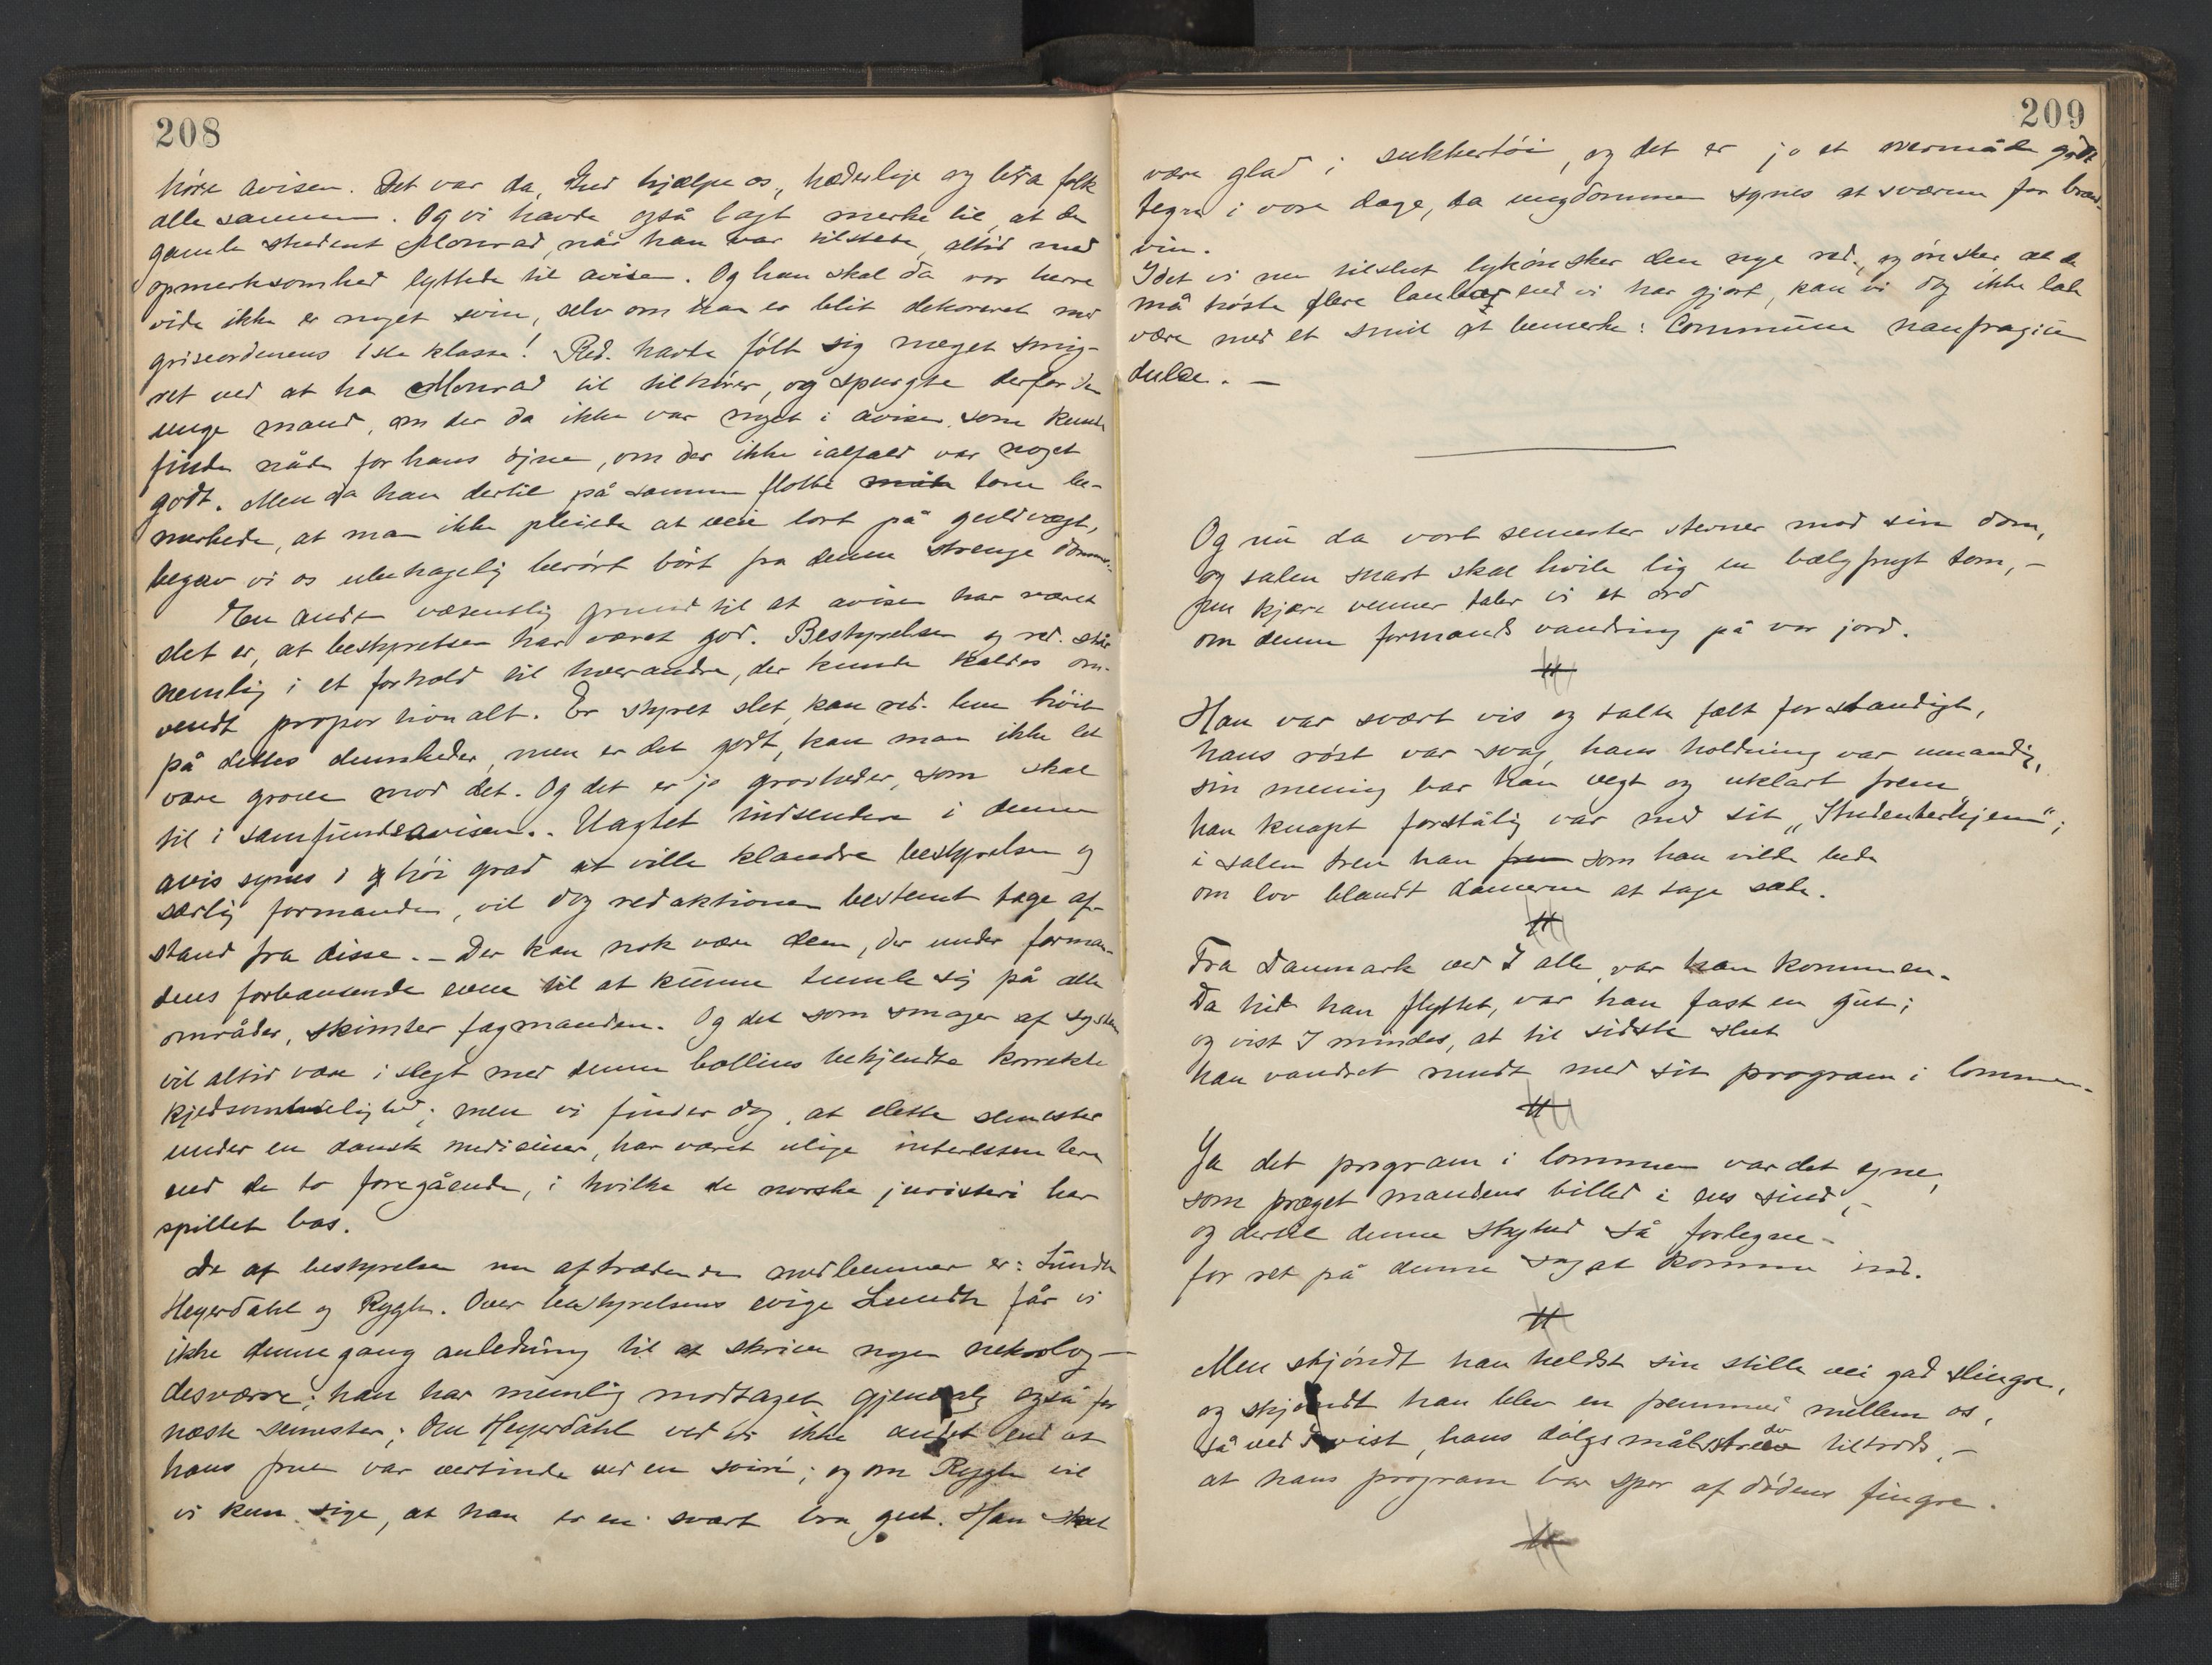 208
høre avisen. Det var da, Gud hjælpe os, hæderlige og bra folk
alle sammen. Og vi havde også lagt merke til, at den
gamle student Monrad, når han var tilstede, altid med
opmerksomhed lyttede til avisen. Og han skal da vor herre
vide ikke er noget svin, selv om han er blit dekoreret med
griseordenens 1ste klasse! Red. havde følt sig meget smig-
ret ved at ha Monrad til tilhører, og spurgte derfor den
unge mand, om der da ikke var noget i avisen, som kunde
finde nåde for hans øjne, om der ikke ialfald var noget
godt. Men da han dertil på samme flotte måde tone be-
merkede, at man ikke pleiede at veie lort på guldvegt,
begav vi os ubehagelig berørt bort fra denne strenge dommer.
En anden væsentlig grund til at avisen har været
slet er, at bestyrelsen har været god. Bestyrelsen og red. står
nemlig i et forhold til hverandre, der kunde kaldes om-
vendt proportionalt. Er styret slet, kan red. leve høit
på dettes dumheder, men er det godt, kan man ikke let
være grov mod det. Og det er jo grovheder, som skal
til i samfundsavisen. Uagtet indsendere i denne
avis synes i høi grad at ville klandre bestyrelsen og
særlig formanden, vil dog redaktionen bestemt tage af-
stand fra disse. - Der kan nok være dem, der under forman-
dens forbausende evne til at kunne tumle sig på alle
områder, skimter fagmanden. Og det som smager af system
vil altid være i slegt med denne bekjendte korrekte
kjedsommelighed; men vi finder dog, at dette semester
under en dansk mediciner, har været ulige interessantere
end de to foregående, i hvilke de norske juristeri har
spillet bas.
De af bestyrelsen nu aftrædende medlemmer er: Lundh
Heyerdahl og Rygh. Over bestyrelsens evige Lundh får vi
ikke denne gang anledning til at skrive nogen nekrolog -
desværre; han har nemlig modtaget gjenvalg også for
næste semester; Om Heyerdahl ved vi ikke andet end at
hans frue var vertinde ved en soiré; og om Rygh vil
vi kun sige, at han er en svært bra gut. Han skal
209
være glad i sukkertøi, og det er jo et overmåde godt
tegn i vore dage, da ungdommen synes at sværme for brænde-
vin.
Idet vi nu tilslut lykønsker den nye red., og ønsker at de
må høste flere laurbær end vi har gjort, kan vi dog ikke lade
være med et smil at bemerke: Commune naufragium
dulce. -
Og nu da vort semester stevner mod sin dom,
og salen snart skal hvile lig en bælgfrugt tom, -
kjære venner taler vi et ord
om denne formands vandring på vor jord.
Han var svært vis og talte fælt forstandigt,
hans røst var svag, hans holdning var umandig,
sin mening bar han vegt og uklart frem
han knapt forståelig var med sit „Studenterhjem“;
i salen tren han frem som han vilde bede
om lov blandt damerne at tage sæde.
Fra Danmark ved I alle, var han kommen.
Da hid han flyttet, var han fast en gut;
og vist I mindes, at til sidste slut
han vandret rundt med sit program i lommen.
Ja det program i lommen var det egne,
som præget mandens billed i ens sind, -
og dertil denne skyhed så forlegne -
for ret på denne sag at komme ind.
Men skjøndt han heldst sin stille vei gad slingre,
og skjøndt han blev en fremmed mellem os,
så ved I vist, hans dølgsmålsstræv tiltrods, -
at hans program bar spor af dødens fingre.